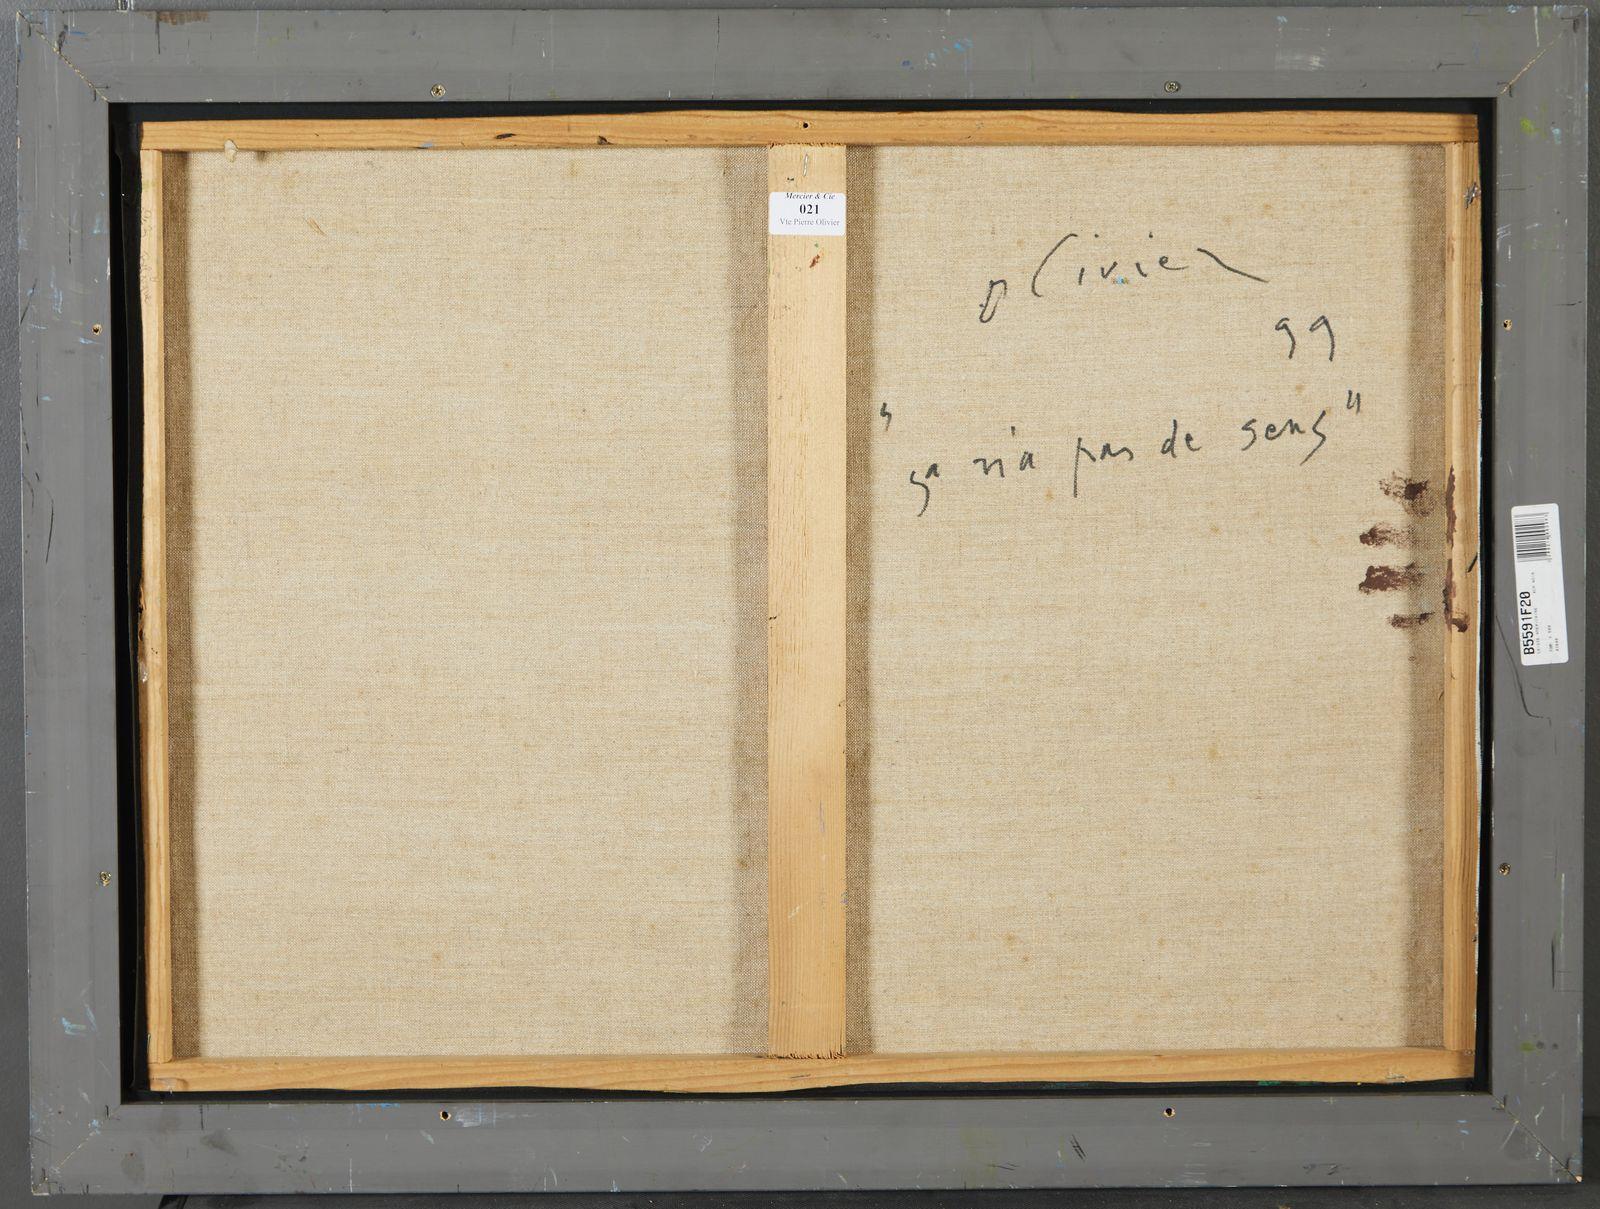 Mercier & Cie
021
Vte Pierre Olivier
olivier
99
"ça n'a pas de sens"
B5591F20